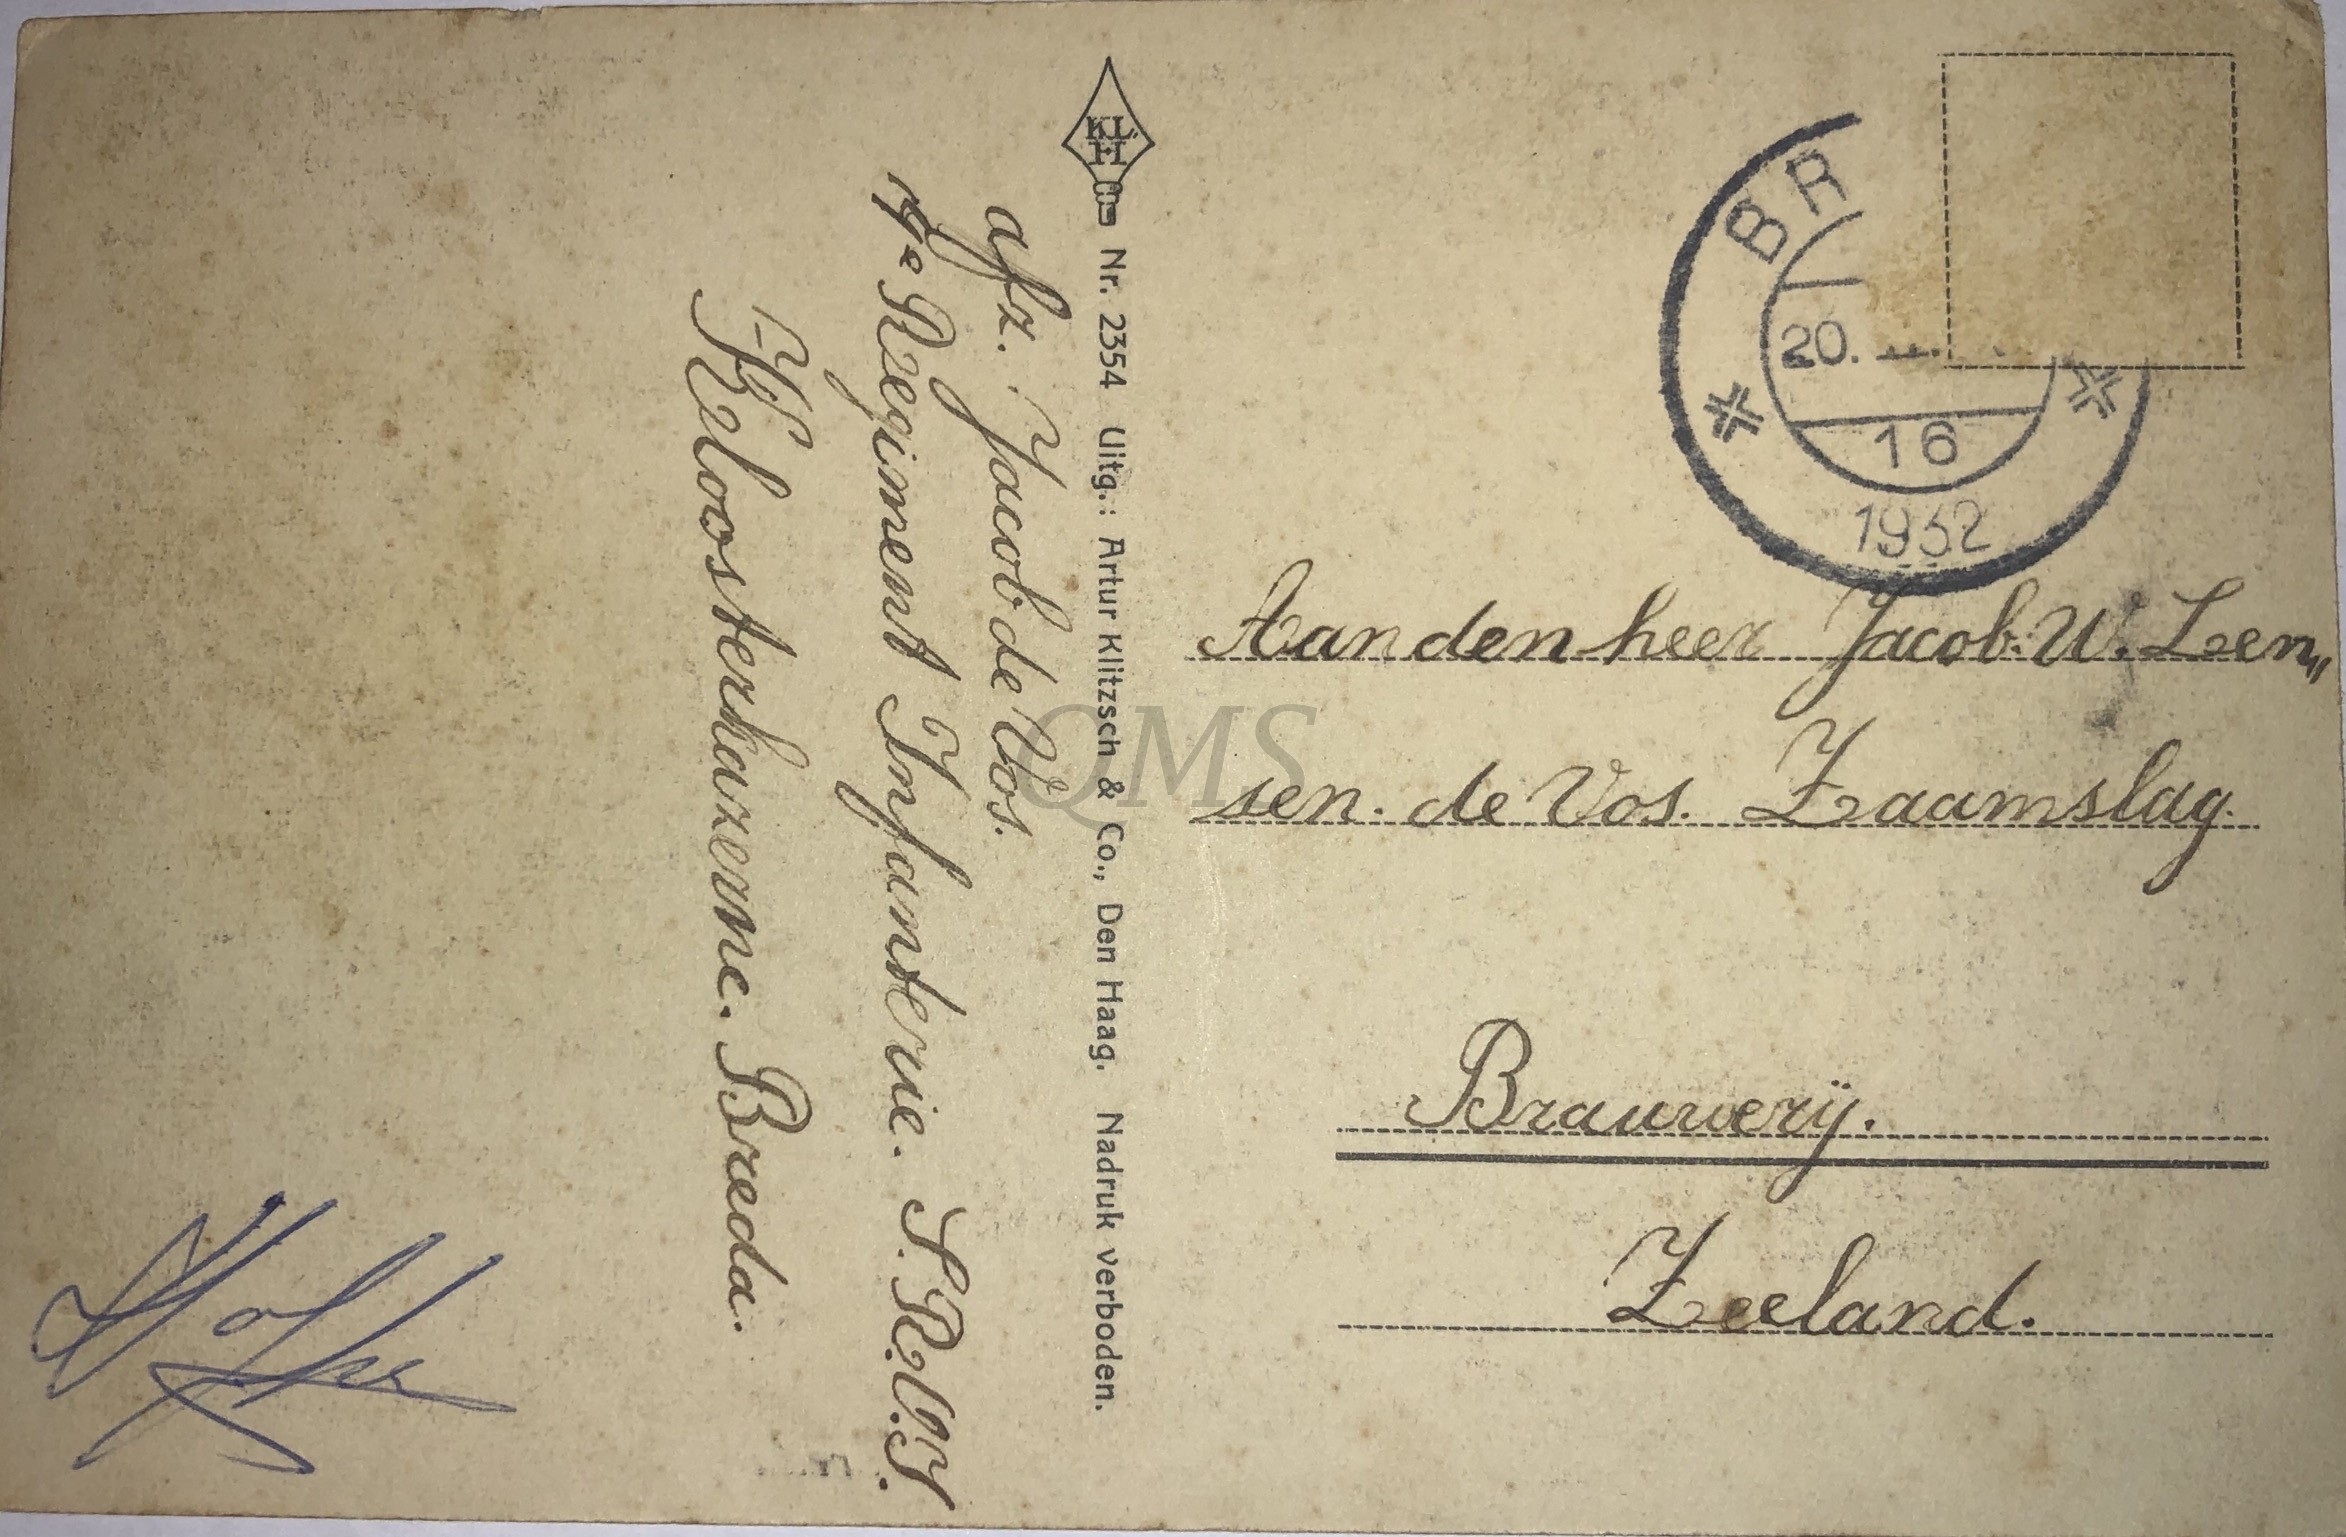 afz. Jacob de Vos.
Regiment Infanterie. S.R.V.S.
Kloosterkazerne. Breda.
KL.
H
Nr. 2354 Uitg.: Artur Klitzsch & Co., Den Haag. Nadruk verboden.
BR
20.
16
1932
Aan den heer Jacob. W. Lem„
sen. de Vos. Zaamslag.
Brauwerij.
Zeeland.
QMS